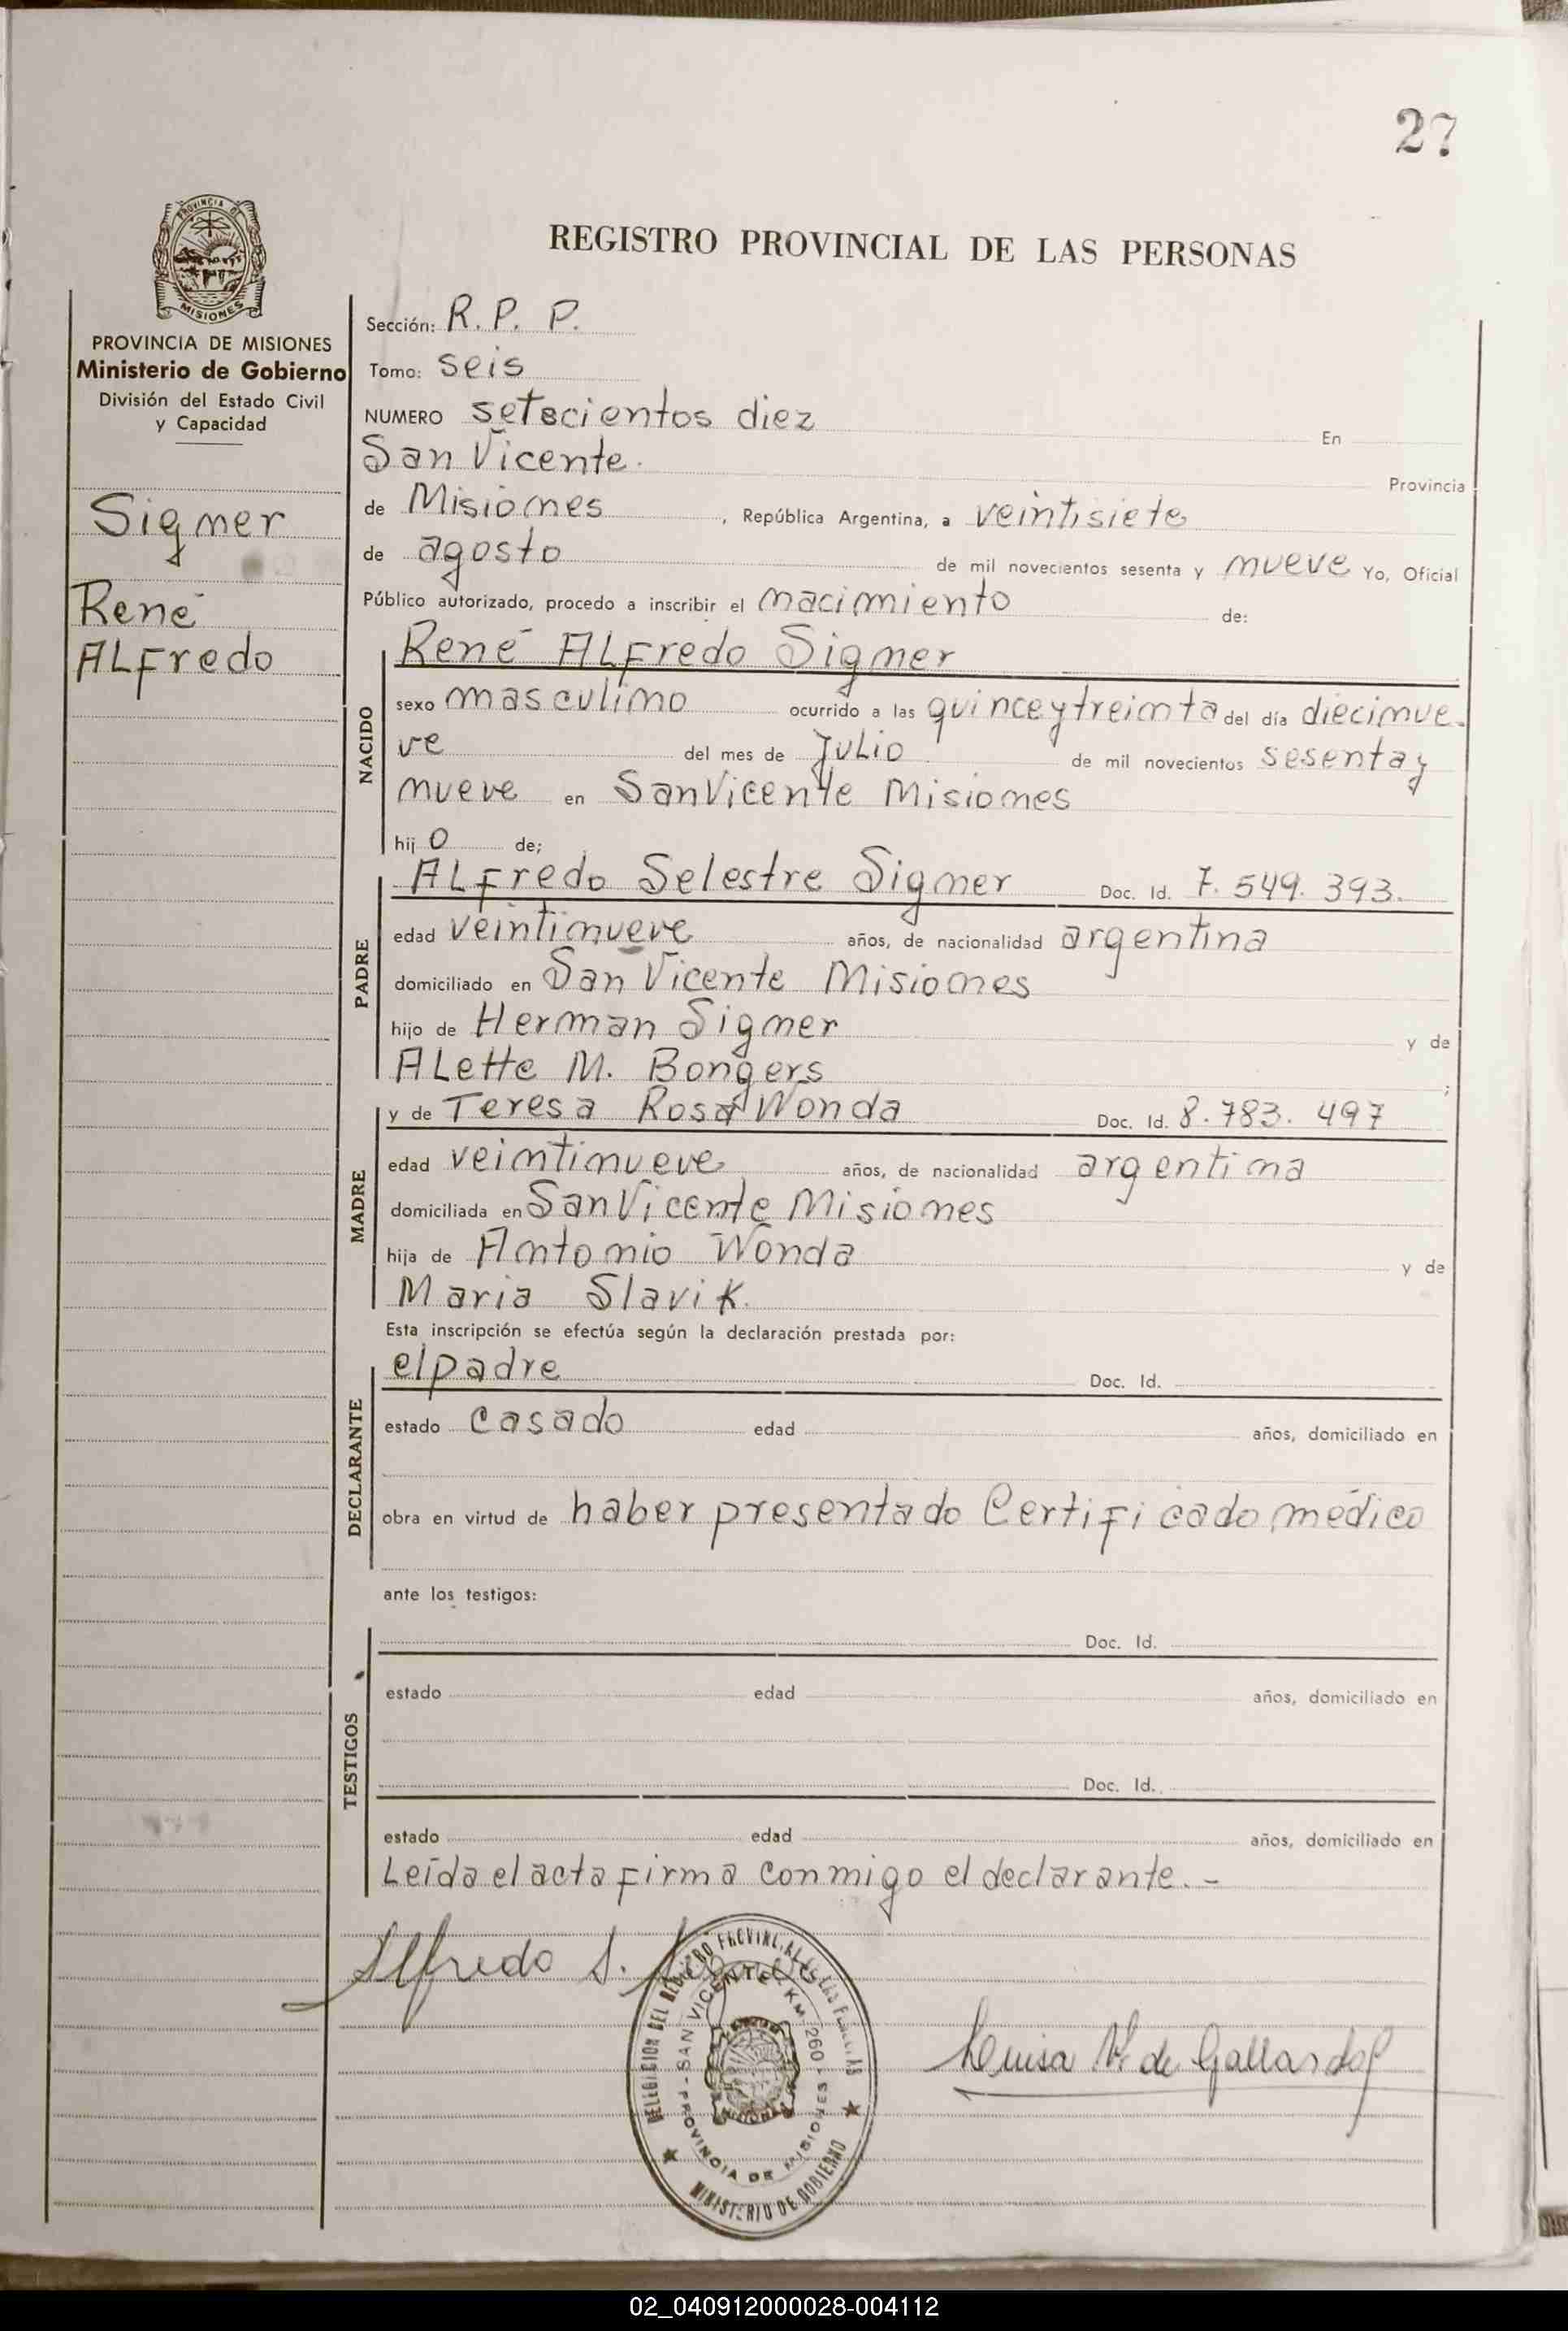 27
PROVINCIA DE
MISIONES
REGISTRO PROVINCIAL DE LAS PERSONAS
PROVINCIA DE MISIONES
Ministerio de Gobierno
División del Estado Civil
y Capacidad
Signer
René
ALFredo
Sección: R. P. P.
Tomo: seis
NUMERO setecientos diez En
San Vicente. Provincia
de Misiones, República Argentina, a veintisiete
de agosto de mil novecientos sesenta y nueve Yo, Oficial
Público autorizado, procedo a inscribir el nacimiento de:
NACIDO
René ALFredo Signer
sexo masculino ocurrido a las quince y treinta del día diecinue-
ve del mes de Julio de mil novecientos sesenta y
nueve en San Vicente Misiones
hijo de;
PADRE
ALFredo Selestre Signer Doc. Id. 7.549.393.
edad veintinueve años, de nacionalidad argentina
domiciliado en San Vicente Misiones
hijo de Herman Signer y de
ALette M. Bongers ;
MADRE
y de Teresa Rosa Wonda Doc. Id. 8.783.497
edad veintinueve años, de nacionalidad argentina
domiciliada en San Vicente Misiones
hija de Antonio Wonda y de
Maria Slavik.
Esta inscripción se efectúa según la declaración prestada por:
DECLARANTE
el padre Doc. Id.
estado casado edad años, domiciliado en
obra en virtud de haber presentado Certificado médico
ante los testigos:
TESTIGOS
Doc. Id.
estado edad años, domiciliado en
Doc. Id.
estado edad años, domiciliado en
Leída el acta firma conmigo el declarante.-
Alfredo S.
SAN VICENTE KM 260
PROVINCIA DE MISIONES
MINISTERIO DE GOBIERNO
Luisa V. de Gallardo
02_040912000028-004112